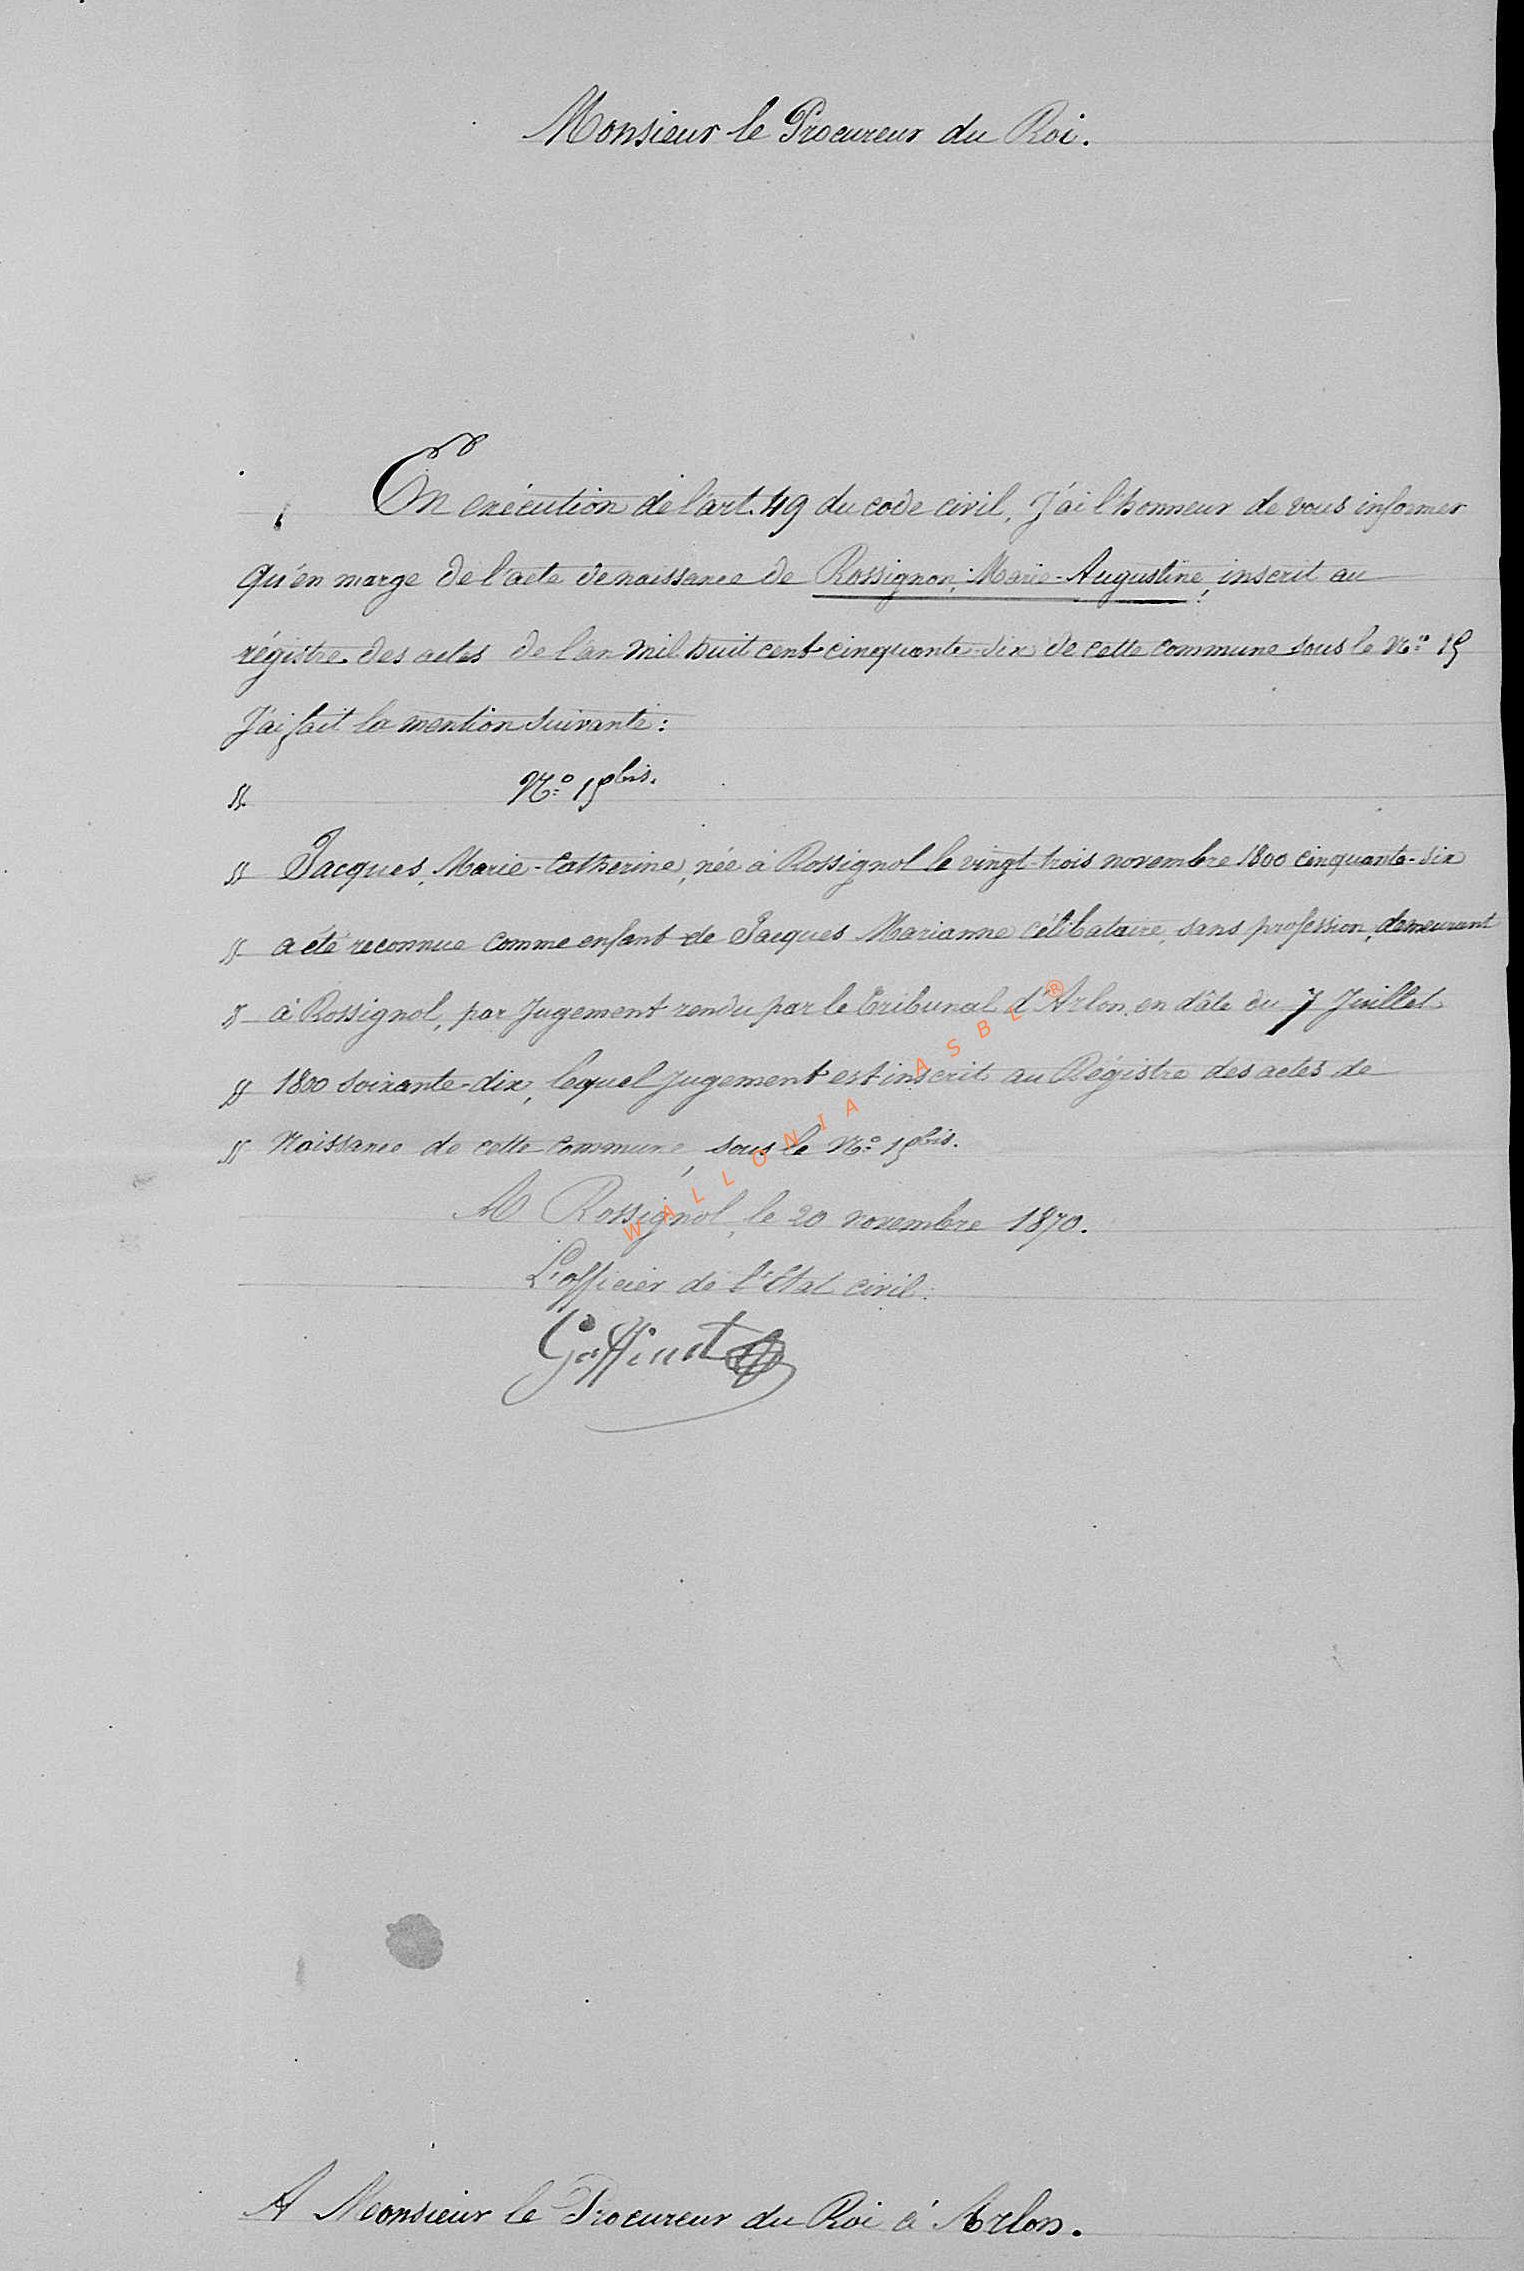 Monsieur le Procureur du Roi.
En exécution de l'art. 49 du code civil, J'ai l'honneur de vous informer
qu'en marge de l'acte de naissance de Rossignon, Marie-Augustine, inscrit au
régistre des actes de l'an mil huit cent cinquante-six de cette commune sous le N:º 15
J'ai fait la mention suivante:
" N:º 15 bis.
" Jacques, Marie-Catherine, née à Rossignol le vingt-trois novembre 1800 cinquante-six
" a été reconnue comme enfant de Jacques Marianne célibataire, sans profession, demeurant
" à Rossignol, par Jugement rendu par le Tribunal d'Arlon, en dâte du 7 Juillet
" 1800 soixante-dix, lequel Jugement est inscrit au Régistre des actes de
" Naissance de cette commune, sous le N:º 15 bis.
A Rossignol, le 20 novembre 1870.
L'officier de l'Etat civil:
Goffinet
A Monsieur le Procureur du Roi à Arlon.
WALLONIA ASBL ®